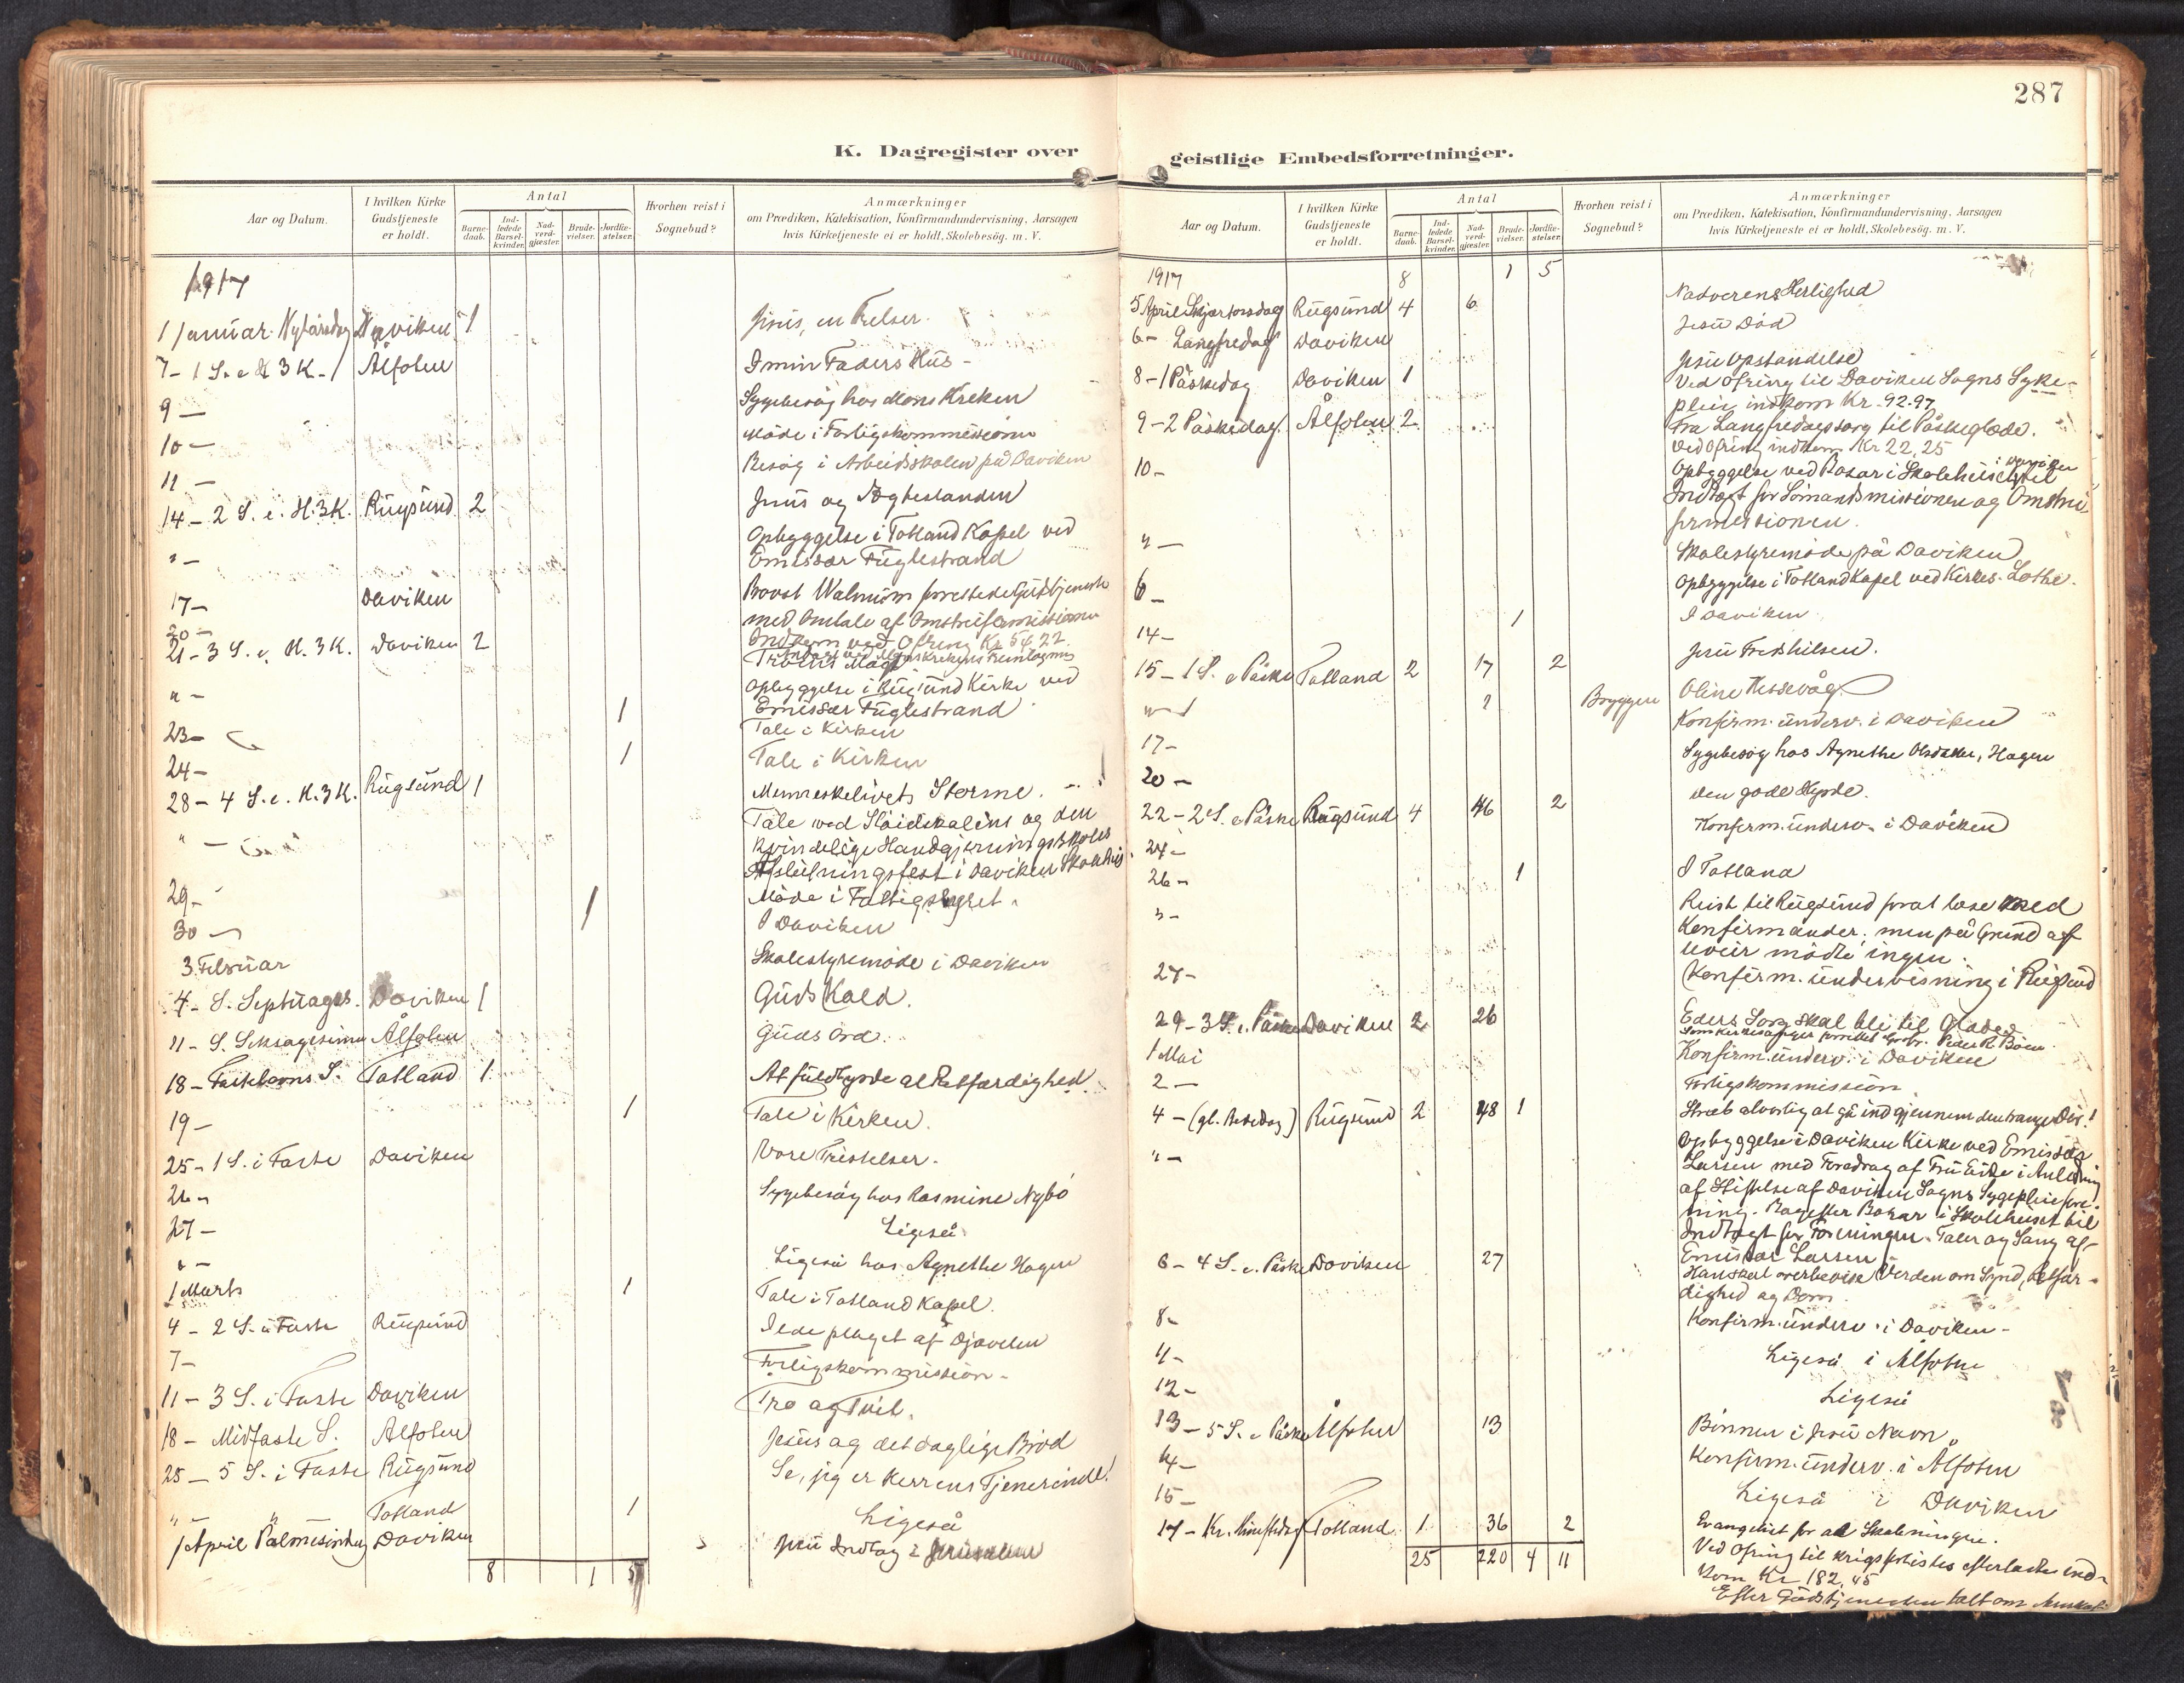 287
K. Dagregister over
Aar og Datum.
I hvilken Kirke
Gudstjeneste
er holdt.
Antal
Barne-
daab.
Ind-
ledede
Barsel-
kvinder.
Nad-
verd-
gjæster.
Brude-
vielser.
Jordfæ-
stelser.
Hvorhen reist i
Sognebud?
Anmærkninger
om Prædiken, Katekisation, Konfirmandundervisning, Aarsagen
hvis Kirketjeneste ei er holdt, Skolebesög. m. V.
1917
1 Januar Nytårsdag Daviken 1 Jesus, en Frelser.
7 - 1 S. e H 3 K - Ålfoten I min Faders Hus -
9 - Sygebesøg hos Mons Kreken
10 - Møde i Forligskommissionen
11 - Besøg i Arbeidsskolen på Daviken
14 - 2 S. e. H. 3 K. Rugsund 2 Jesus og Ægtestanden
" - Opbyggelse i Totland Kapel ved
Emissær Fuglestrand
17 - Daviken Provst Walnum forrettede Gudstjeneste
med Omtale af Omstreifermissionen
20 - Indkom ved Ofring Kr 54.22.
21 - 3 S. e. H. 3 K. Daviken 2 Troens Magt
" - Opbyggelse i Rugsund Kirke ved
Emissær Fuglestrand
23 - 1 Tale i Kirken
24 - 1 Tale i Kirken
28 - 4 S. e. H. 3 K. Rugsund 1 Menneskelivets Storme.
" - Tale ved Sløidskolens og den
kvindelige Handgjerningsskoles
Afslutningsfest i Daviken Skolehus
29 - Møde i Fattigstyret.
30 - 1 I Daviken
3 Februar Skolestyremøde i Daviken
4 - S. Septuages. Daviken 1 Guds Kald.
11 - S. Seksagesima Ålfoten Guds Ord.
18 - Fastelavns S. Totland 1 At fuldbyrde al Retfærdighed.
19 - 1 Tale i Kirken.
25 - 1 S. i Faste Daviken Vore Fristelser.
26 - Sygebesøg hos Rasmine Nybø
27 - Ligeså
" - Ligeså hos Agnethe Hagen
1 Marts 1 Tale i Totland Kapel.
4 - 2 S. i Faste Rugsund Ilde plaget af Djævelen
7 - Forligskommission -
11 - 3 S. i Faste Daviken Tro og Tvil.
18 - Midfaste S. Ålfoten Jesus og det daglige Brød
25 - 5 S. i Faste Rugsund Se, jeg er Herrens Tjenerinde!
" " Totland 1 Ligeså
1 April Palmesøndag Daviken Jesu Indtog i Jerusalem
8 1 5
geistlige Embedsforretninger.
Aar og Datum.
I hvilken Kirke
Gudstjeneste
er holdt.
Antal
Barne-
daab.
Ind-
ledede
Barsel-
kvinder.
Nad-
verd-
gjæster.
Brude-
vielser.
Jordfæ-
stelser.
Hvorhen reist i
Sognebud?
Anmærkninger
om Prædiken, Katekisation, Konfirmandundervisning, Aarsagen
hvis Kirketjeneste ei er holdt, Skolebesög. m. V.
1917 8 1 5
5 April Skjærtorsdag Rugsund 4 6 Nadverens Herlighed
6 - Langfredag Daviken Jesu Død
8 - 1 Påskedag Daviken 1 Jesu Opstandelse
Ved Ofring til Daviken Sogns Syke-
pleie indkom Kr. 92.97
9 - 2 Påskedag. Ålfoten 2 Fra Langfredagssorg til Påskeglæde.
Ved Ofring indkom Kr 22,25
10 - Opbyggelse ved Basar i Skolehuset i Daviken til
Indtægt for Sømandsmissionen og Omstrei-
fermissionen.
" - Skolestyremøde på Daviken
Opbyggelse i Totland Kapel ved Kirkes. Lothe.
14 - 1 I Daviken
15 - 1 S. e Påske Totland 2 17 2 Jesu Fredshilsen.
" - 2 Bryggen Oline Hessevåg
17 - Konfirm. underv. i Daviken
20 - Sygebesøg hos Agnethe Olsdatter, Hagen
22 - 2 S. e Påske Rugsund 4 46 2 Den gode Hyrde.
24 - Konfirm. underv. i Daviken
26 - 1 I Totland
" - Reist til Rugsund forat læse med
Konfirmander, men på Grund af
uveir mødte ingen.
27 - Konfirm. undervisning i Rugsund
29 - 3 S. e. Påske Daviken 2 26 Eders Sorg skal bli til Glæde.
1 Mai Konfirm. underv. i Daviken
2 - Forligskommission
4 - (gl. Bededag) Rugsund 2 48 1 Stræb alvorlig at gå ind gjennem den trange Dør!
" - Opbyggelse i Daviken Kirke ved Emissær
Larsen med Foredrag af Fru Eide i Anledning
af Stiftelse af Daviken Sogns Sygepleiefore-
ning. Bagefter Basar i Skolehuset til
Indtægt for Foreningen. Taler og Sang af
Emissær Larsen
6 - 4 S. e. Påske Daviken 27 Han skal overbevise Verden om Synd, Retfær-
dighed og Dom.
8 - Konfirm. underv. i Daviken -
11 - Ligeså i Ålfoten
12 - Ligeså
13 - 5 S. e Påske Ålfoten 13 Bønnen i Jesu Navn.
14 - Konfirm. underv. i Ålfoten
15 - Ligeså i Daviken
17 - Kr. Himmelfartsdag Totland 1 36 2 Evangeliet for al Skabningen.
Ved Ofring til krigsforlistes efterladte ind-
kom Kr 182,45
25 220 4 11
Efter Gudstjenesten talt om